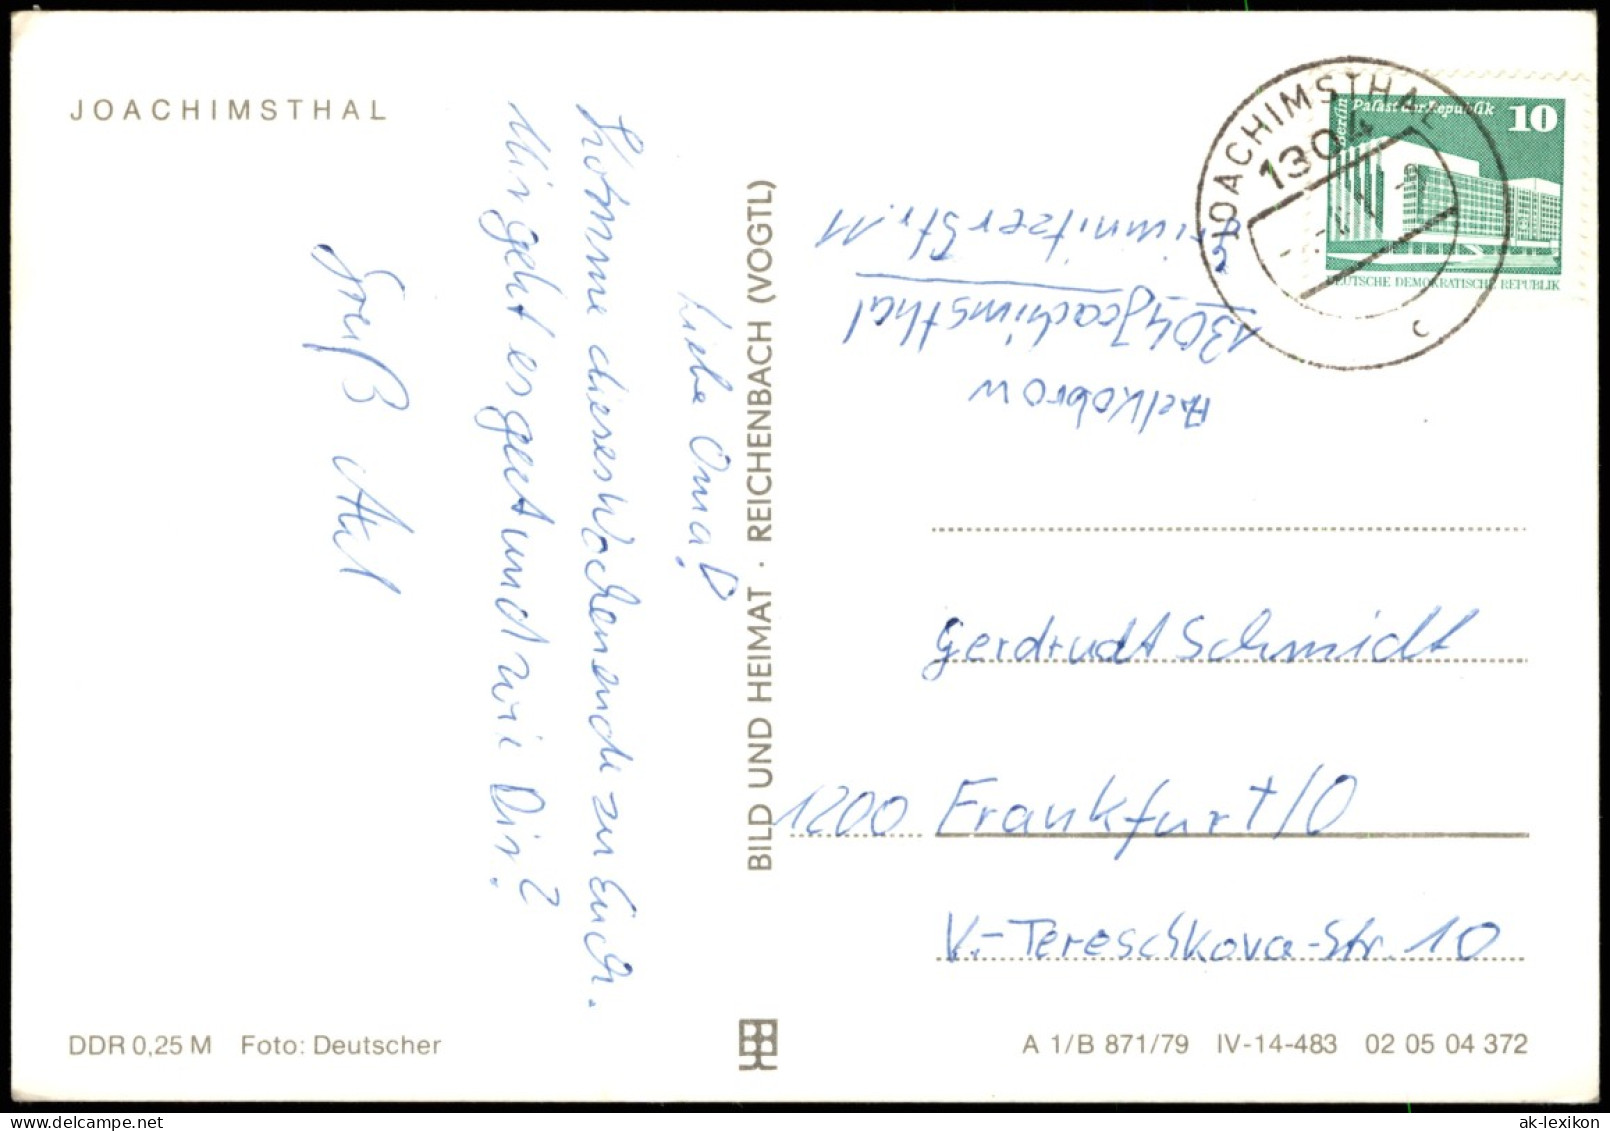 JOACHIMSTHAL
Liebe Oma!
Komme dieses Wochenende zu Euch.
Mir geht es gut und wie Dir?
Gruß Axel
BILD UND HEIMAT · REICHENBACH (VOGTL)
JOACHIMSTHAL
1304
c
Berlin
Palast der Republik 10
DEUTSCHE DEMOKRATISCHE REPUBLIK
1304 Joachimsthal
Str. 11
Gerdrudt Schmidt
1200 Frankfurt/O
V.-Tereschkova-Str. 10
DDR 0,25 M Foto: Deutscher
A 1/B 871/79 IV-14-483 02 05 04 372
ak-lexikon